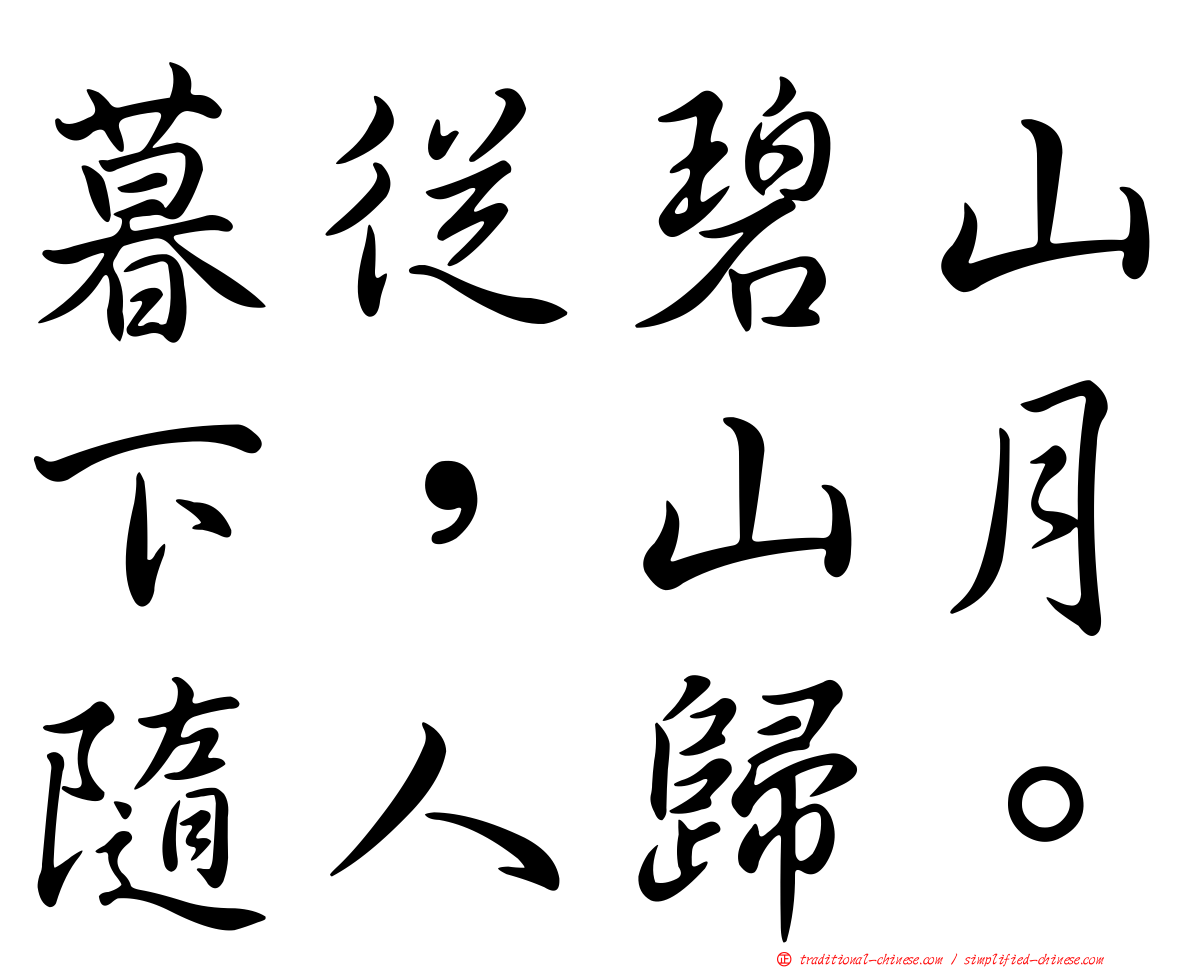 暮從碧山
下，山月
隨人歸。
正 traditional-chinese.com / simplified-chinese.com